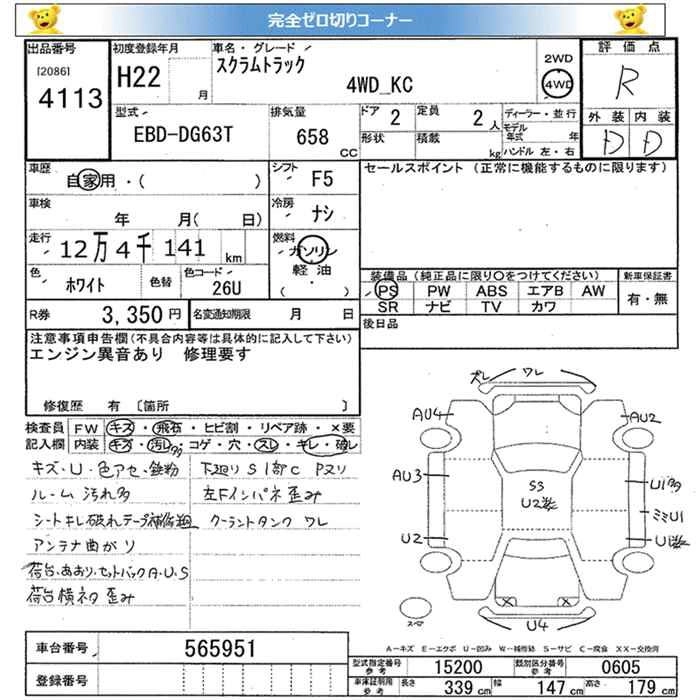 完全ゼロ切りコーナー
出品番号 [2086] 4113
初度登録年月 H22 月
車名・グレード スクラムトラック 4WD_KC
2WD 4WD
評価点 R
外装 内装 D D
型式 EBD-DG63T
排気量 658 CC
ドア 2
定員 2 人
形状 積載 kg
ディーラー・並行
モデル年式 年
ハンドル 左・右
車歴 自家用・( )
シフト F5
車検 年 月( 日)
冷房 ナシ
走行 12万4千141 km
燃料 ガソリン 軽油 ( )
色 ホワイト 色替
色コード 26U
R券 3,350円
名変通知期限 月 日
セールスポイント (正常に機能するものに限ります)
装備品 (純正品に限り○をつけてください)
新車保証書 有・無
PS PW ABS エアB AW
SR ナビ TV カワ
後日品
注意事項申告欄(不具合内容等は具体的に記入して下さい)
エンジン異音あり 修理要す
修復歴 有 〔箇所 〕
検査員記入欄
FW キズ・飛石・ヒビ割・リペア跡・×要
内装 キズ・汚し多・コゲ・穴・スレ・キレ・破レ
キズ・U・色アセ・鉄粉
ルーム 汚れ多
シートキレ破れテープ補修
アンテナ曲がり
荷台・あおり・セットバックA・U・S
荷台横ネタ歪み
下廻りS1部C Pヌリ
左Fインパネ歪み
クーラントタンク ワレ
ズレ ワレ
AU4 AU2
AU3 S3 U1多
U2 ミミU1
U2 U1
U4
A-キズ E-エクボ U-凹み W-補修跡 S-サビ C-腐食 XX-交換済
車台番号 565951
登録番号
型式指定番号 参考 15200
類別区分番号 参考 0605
車庫証明用 参考 長さ 339 cm 幅 147 cm 高さ 179 cm